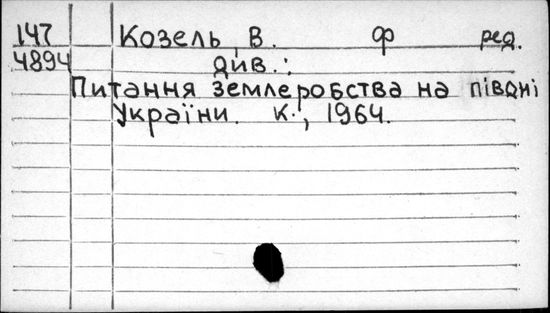 147 Козель, В. Ф ред.
4894 див.:
Питання землеробства на півдні
України. К., 1964.